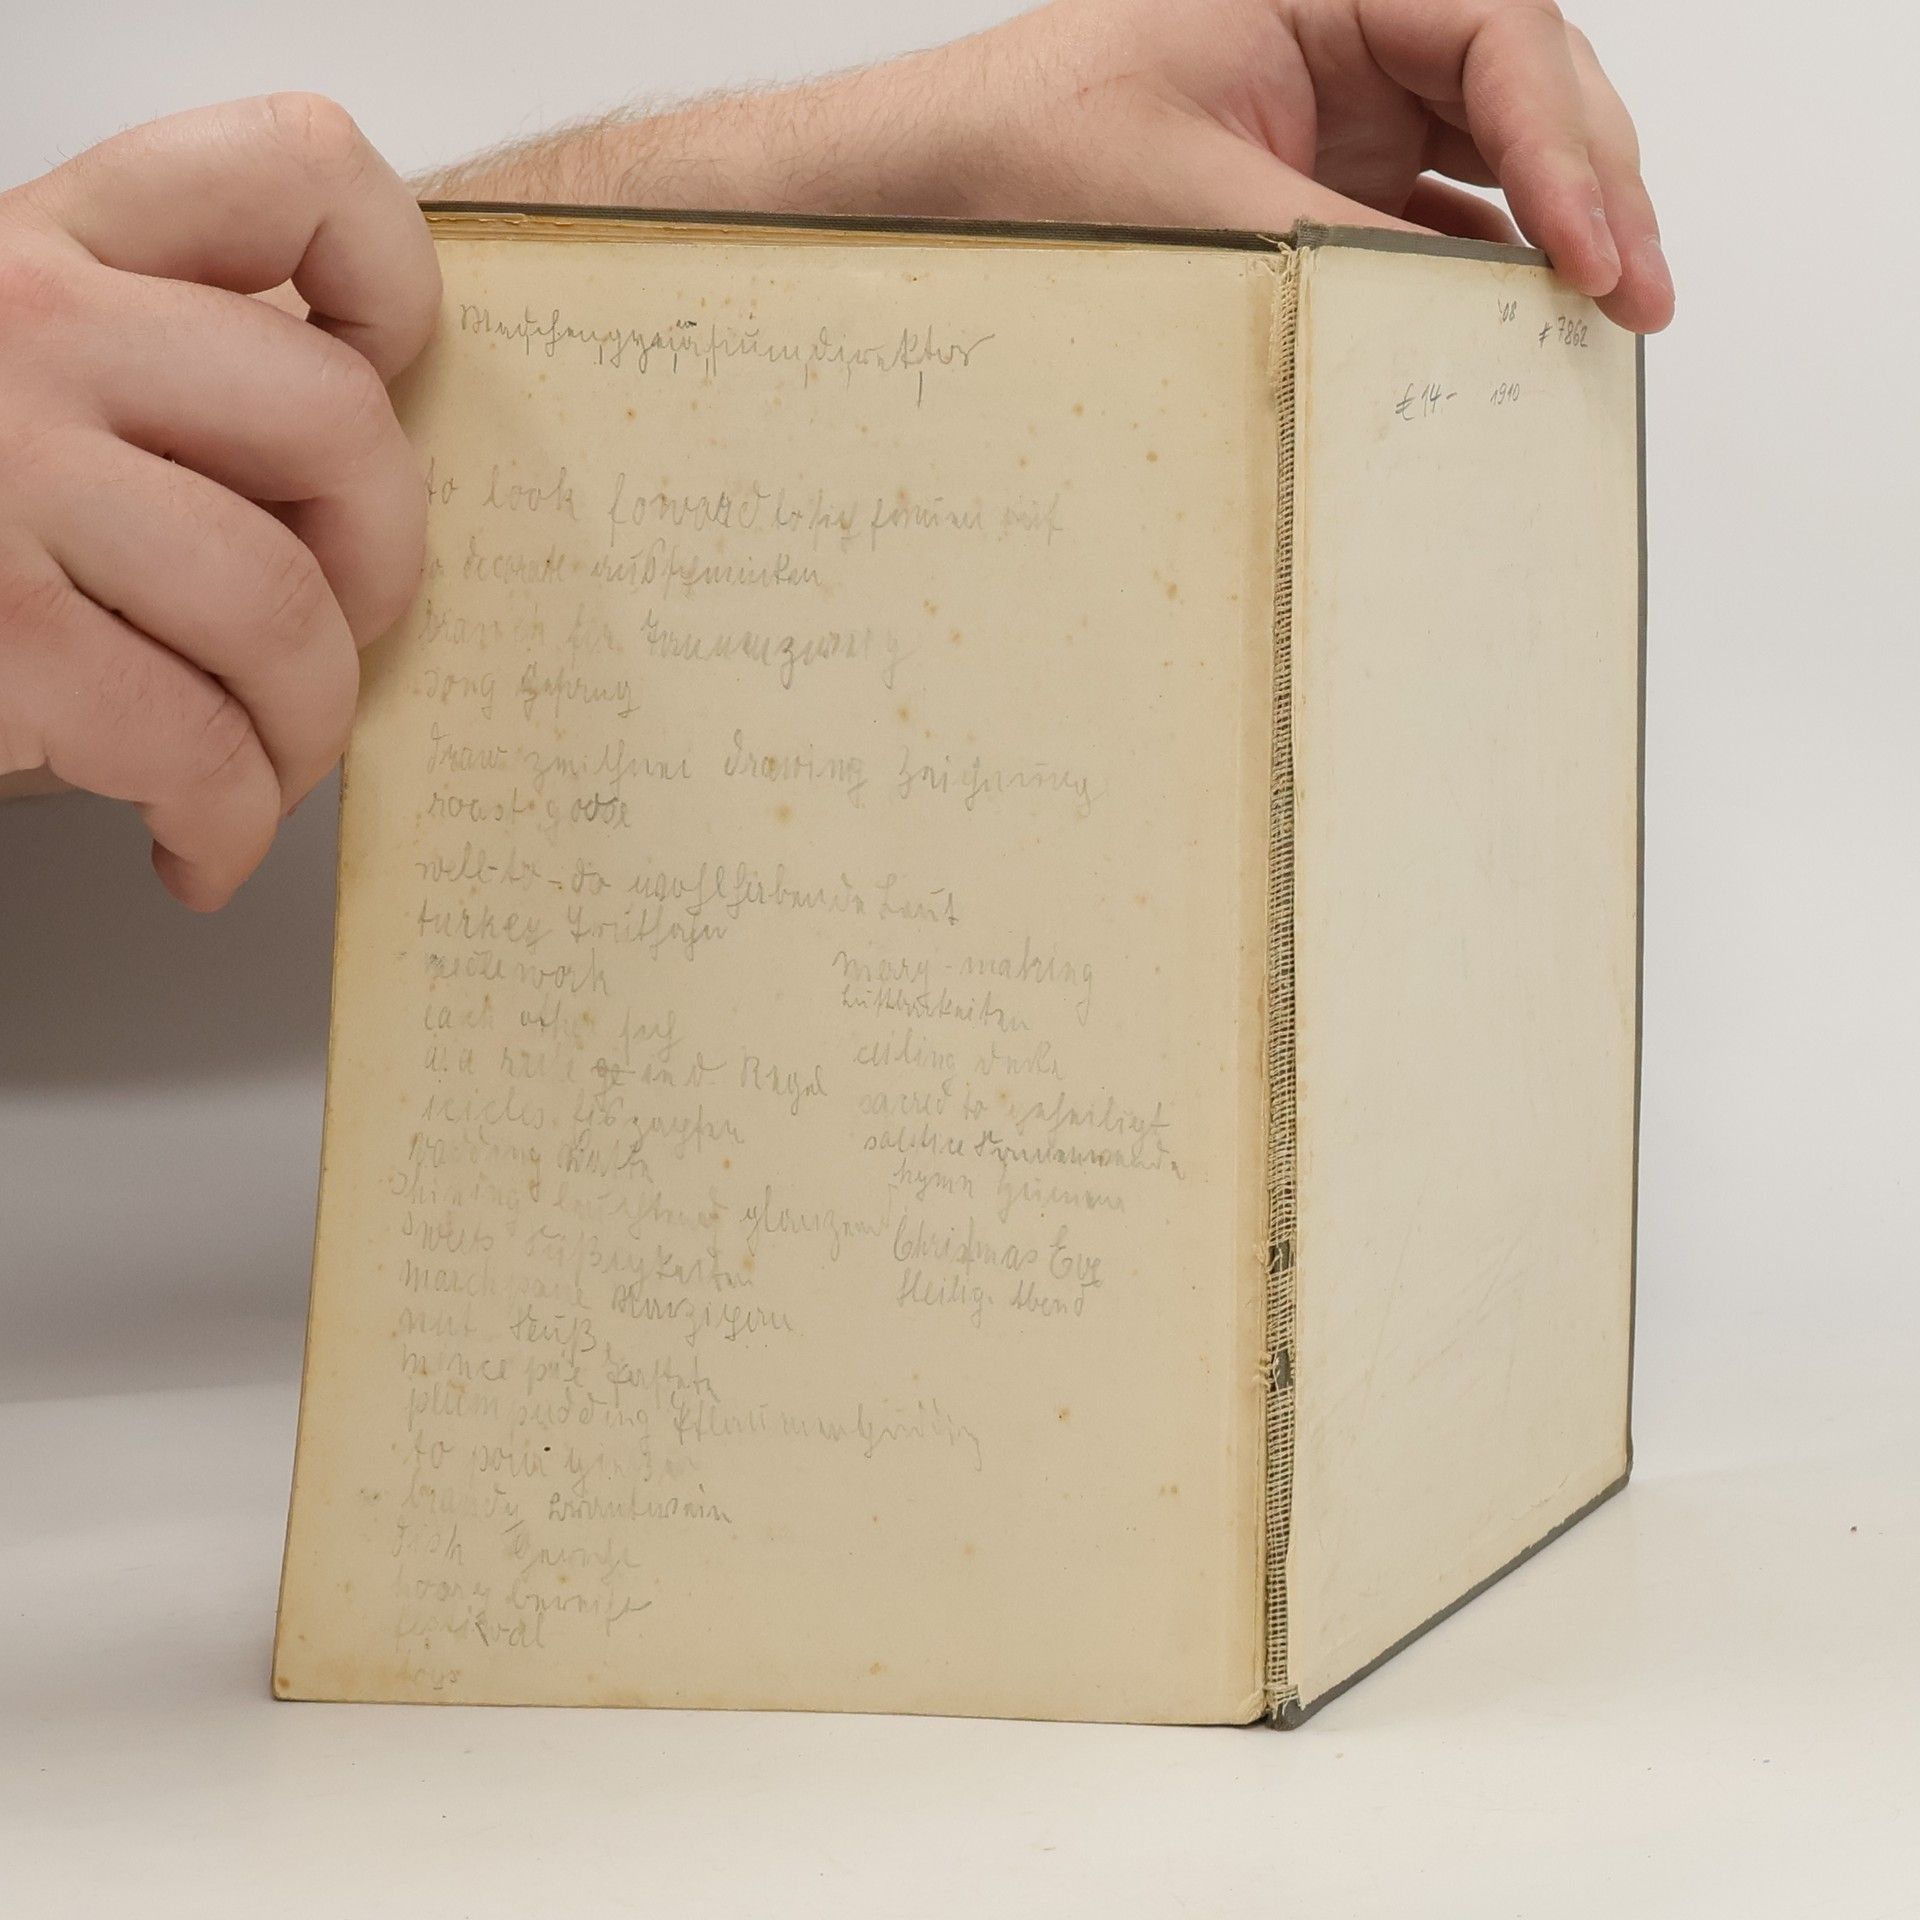 Mädchengymnasiumdirektor
to look foward to sich freuen auf
to decorate ausschmücken
branch fir Tannenzweig
song Gesang
draw zeichnen drawing Zeichnung
roast goose
well-to-do wohlhabende Leut
turkey Truthahn
work
each other sich
as a rule in d. Regel
icicles Eiszapfen
wadding Watte
shining leuchtend glänzend
sweets Süßigkeiten
marchpane Marzipan
nut Nuß
mince pie Pastete
plum pudding Pflaumenpudding
to pour
brandy Branntwein
dish Gericht
hoary bereift
festival
toys
mery-making
Lustbarkeiten
ceiling Decke
sacred to geheiligt
solstice Sonnenwende
hymn Hymne
Christmas Eve
Heilig. Abend
'08
# 7862
€ 14.- 1910